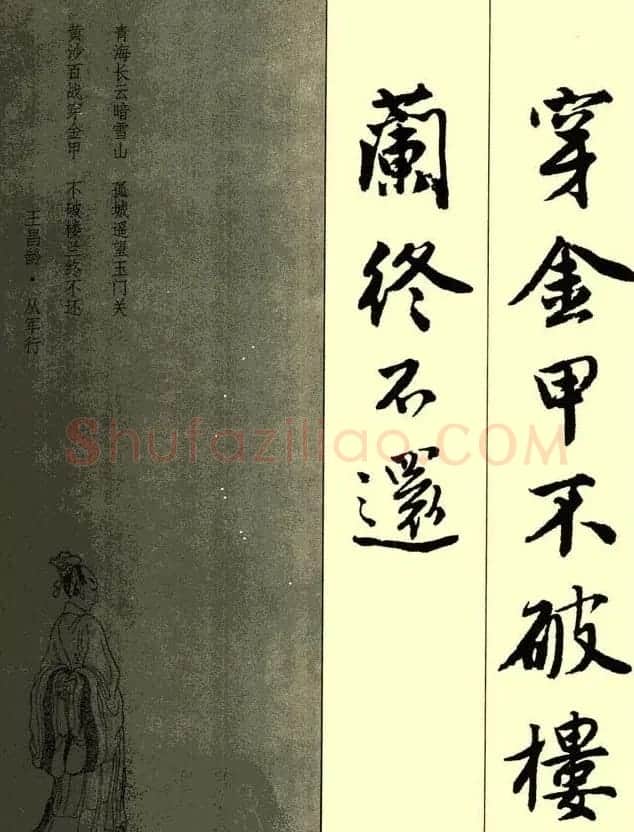 穿金甲不破樓
蘭終不還
青海长云暗雪山 孤城遥望玉门关
黄沙百战穿金甲 不破楼兰终不还
王昌龄·从军行
Shufaziliao.COM